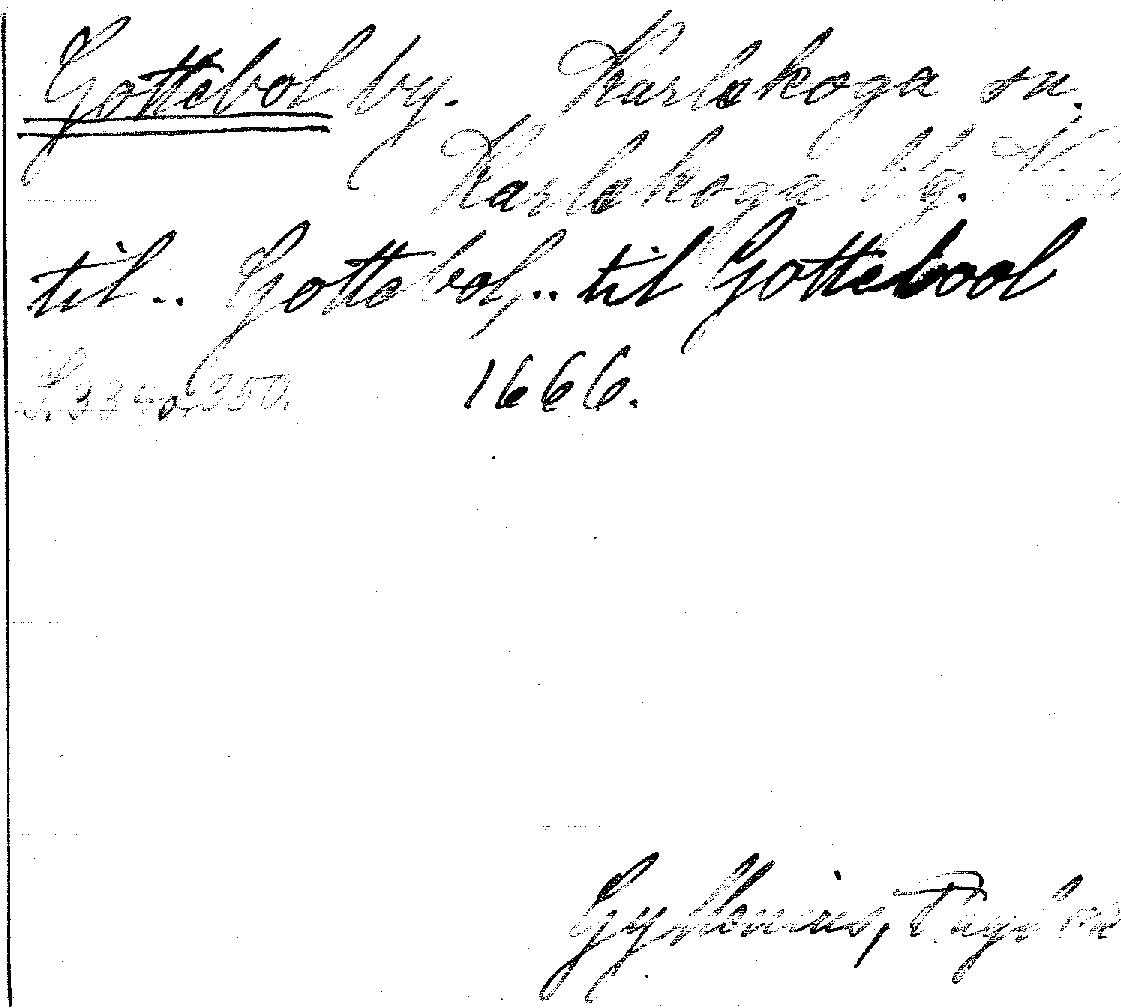 Gottebol by. Karlskoga sn.
Karlskoga bg.
til.. Gottebol,.. til Gottebool
1666.
Gyllenius,